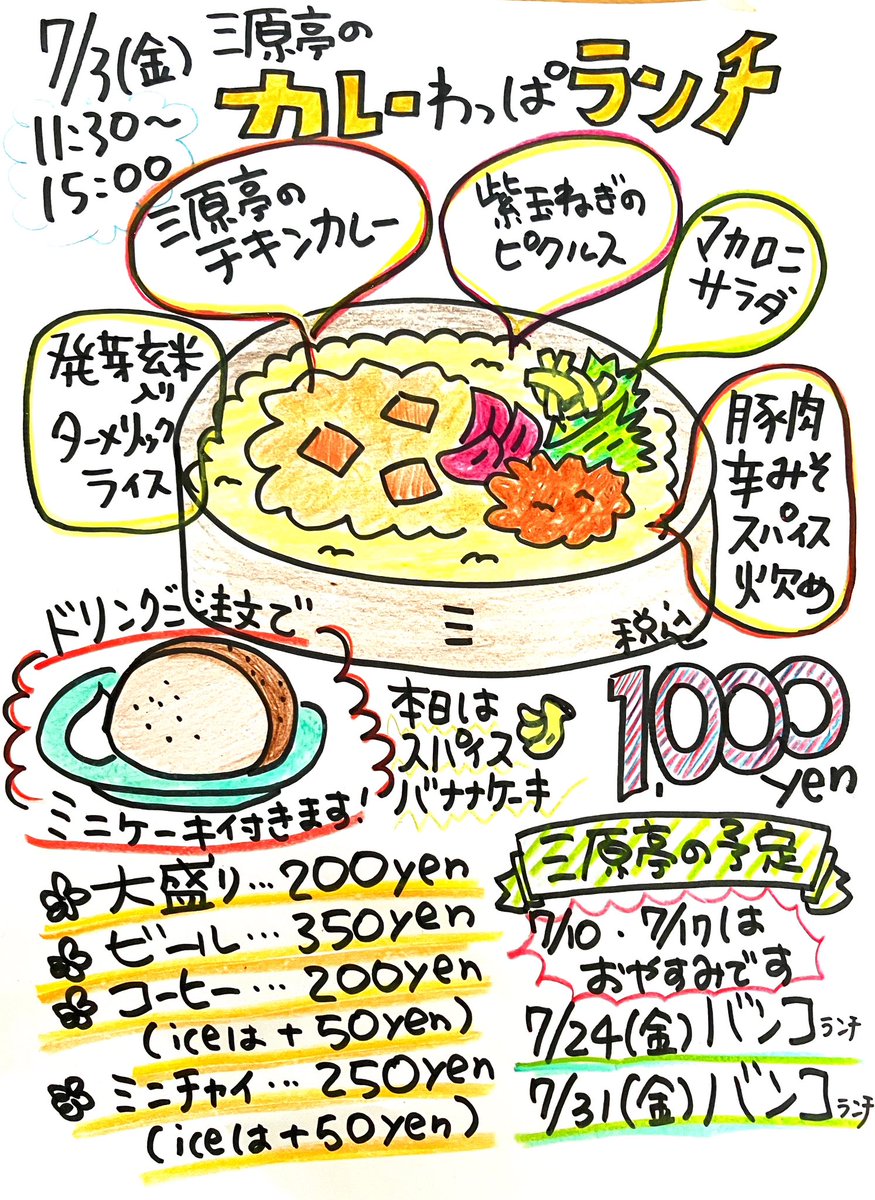 7/3(金)
11:30〜
15:00
三原亭の
カレーわっぱランチ
三原亭の
チキンカレー
紫玉ねぎの
ピクルス
マカロニ
サラダ
発芽玄米
入り
ターメリック
ライス
豚肉
辛みそ
スパイス
炒め
三
税込
1,000
yen
ドリンクご注文で
ミニケーキ付きます!
本日は
スパイス
バナナケーキ
大盛り…200yen
ビール…350yen
コーヒー…200yen
(iceは+50yen)
ミニチャイ…250yen
(iceは+50yen)
三原亭の予定
7/10・7/17は
おやすみです
7/24(金)バンコランチ
7/31(金)バンコランチ